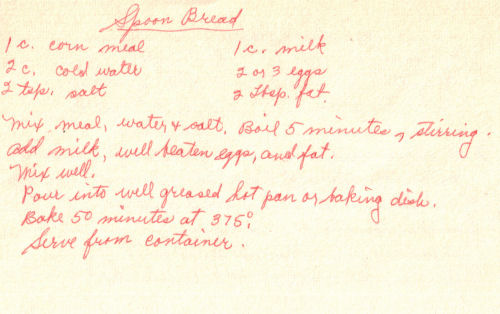 Spoon Bread
1 c. corn meal 1 c. milk
2 c. cold water 2 or 3 eggs
2 tsp. salt 2 Tbsp. fat.
Mix meal, water & salt. Boil 5 minutes, stirring.
Add milk, well beaten eggs, and fat.
Mix well.
Pour into well greased hot pan or baking dish.
Bake 50 minutes at 375°.
Serve from container.